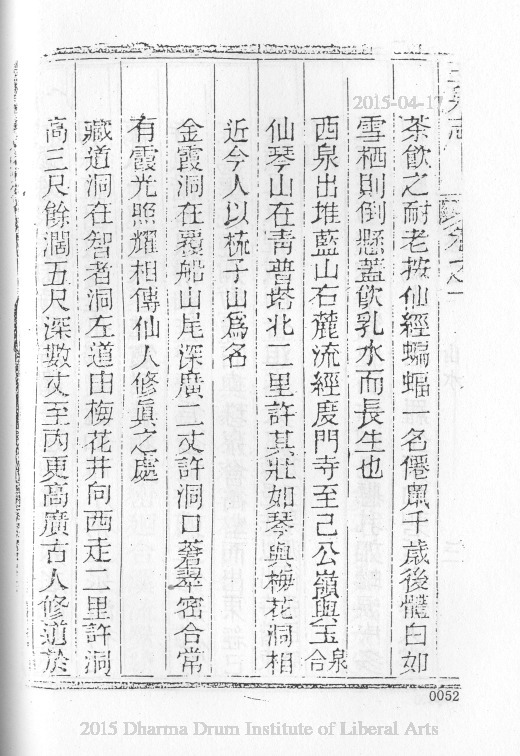 2015-04-17
玉泉志 卷之一
茶飲之耐老按仙經蝙蝠一名僊鼠千歲後體白如
雪栖則倒懸蓋飲乳水而長生也
西泉出堆藍山右麓流經度門寺至己公嶺與玉泉合
仙琴山在青普塔北二里許其壯如琴與梅花洞相
近今人以梳子山爲名
金霞洞在覆船山尾深廣二丈許洞口蒼翠密合常
有霞光照耀相傳仙人修眞之處
藏道洞在智者洞左道由梅花井向西走二里許洞
高三尺餘濶五尺深數丈至內更高廣古人修道於
0052
2015 Dharma Drum Institute of Liberal Arts